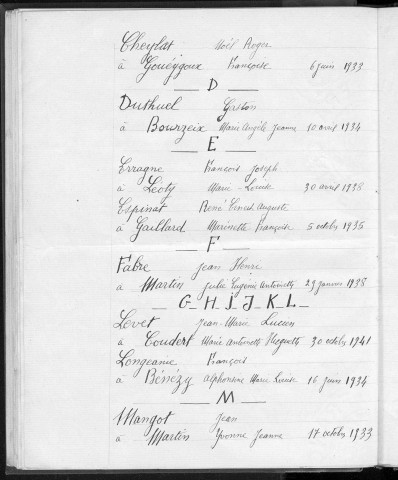 Cheylat Noël Roger
à Gouëygoux Françoise 6 juin 1933
D
Duthuel Gaston
à Bourzeix Marie Angèle Jeanne 10 avril 1934
E
Erragne François Joseph
à Léoty Marie-Louise 30 avril 1938
Espinat René Ernest Auguste
à Gaillard Marinette Françoise 5 octobre 1935
F
Fabre Jean Henri
à Martin Julie Eugénie Antoinette 29 janvier 1938
G-H-I-J-K-L-
Levet Jean-Marie Lucien
à Coudert Marie Antoinette Huguette 30 octobre 1941
Longeanie François
à Bénézy Alphonsine Marie Louise 16 juin 1934
M
Mangot Jean
à Martin Yvonne Jeanne 17 octobre 1933